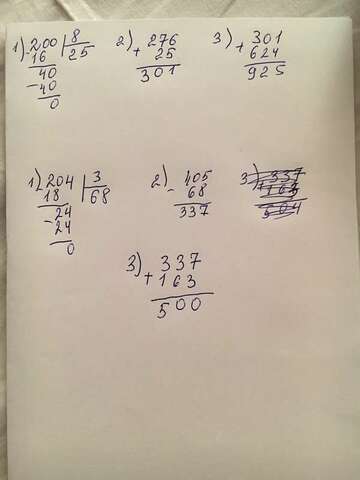 1) 200 | 8 2) 276 3) 301
- 16 25 + 25 + 624
40 301 925
- 40
0
1) 204 | 3 2) 405 3) 337
18 68 - 68 + 163
24 337 504
- 24
0
3) 337
+ 163
500